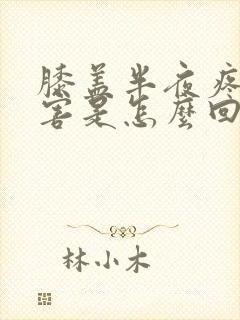 膝盖半夜疼
害是怎麼回
林小木